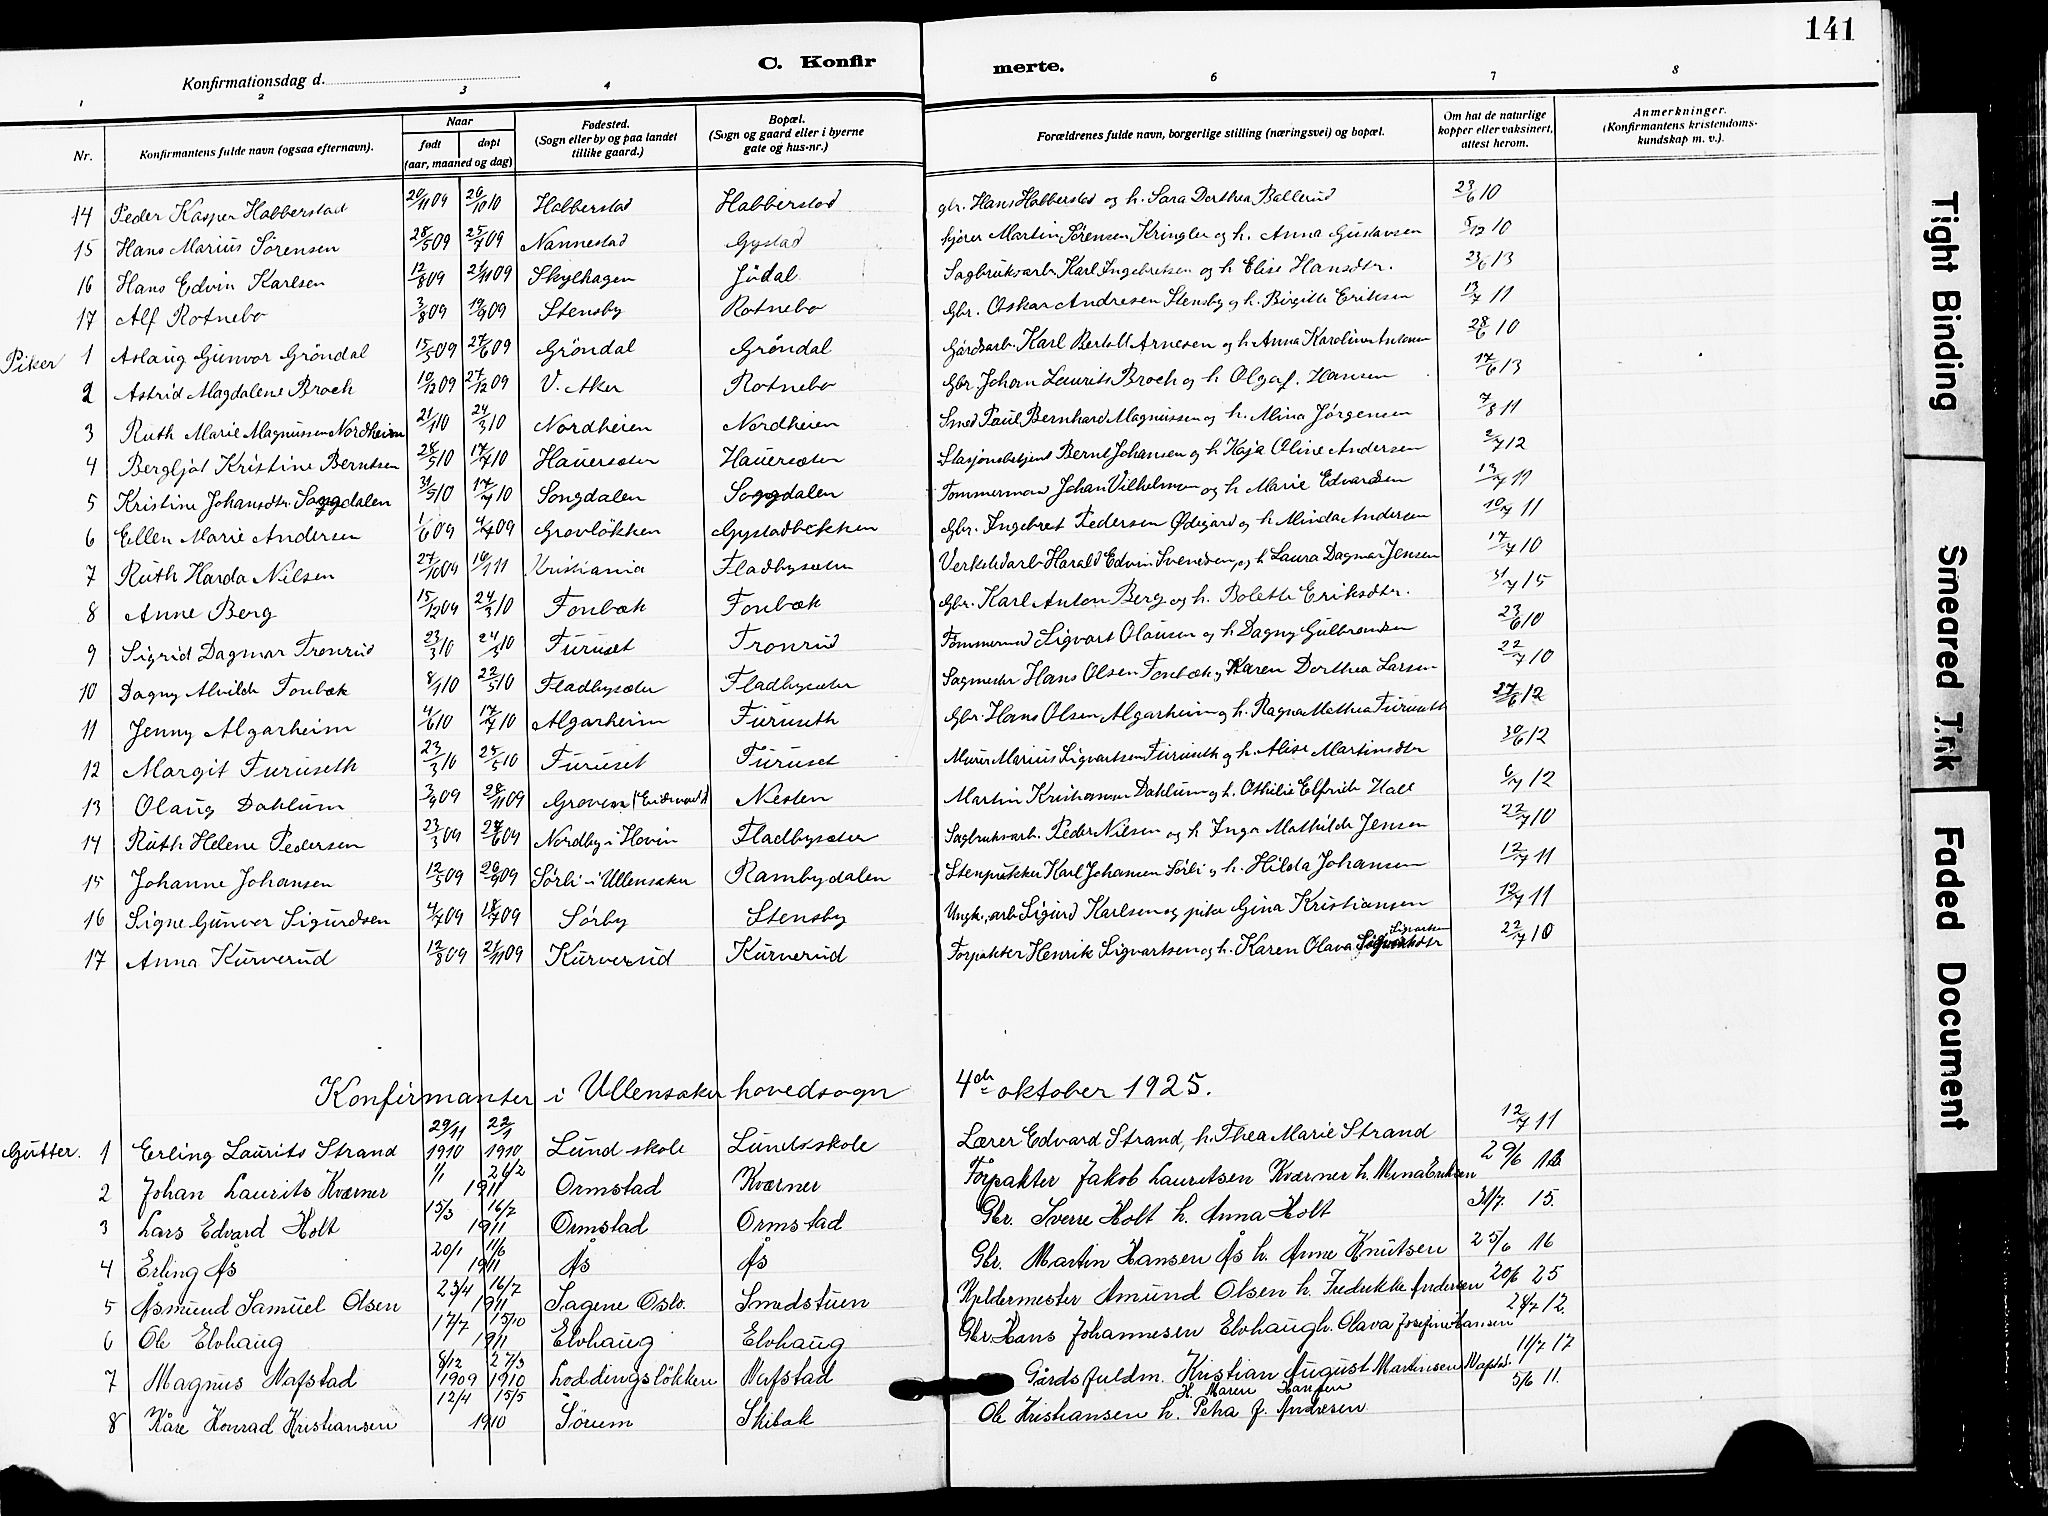 141
C. Konfirmerte.
Konfirmationsdag d.
1 2 3 4 6 7 8
Nr. Konfirmantens fulde navn (ogsaa efternavn). Naar født døpt (aar, maaned og dag) Fødested. (Sogn eller by og paa landet tillike gaard.) Bopæl. (Sogn og gaard eller i byerne gate og hus-nr.) Forældrenes fulde navn, borgerlige stilling (næringsvei) og bopæl. Om hat de naturlige kopper eller vaksinert, attest herom. Anmerkninger. (Konfirmantens kristendoms-kundskap m. v.).
14 Peder Kasper Habberstad 20/11 09 26/10 10 Habberstad Habberstad gbr. Hans Habberstad og h. Sara Dorthea Ballerud 23/6 10
15 Hans Marius Sörensen 28/5 09 25/7 09 Nannestad Gystad kjører Martin Sørensen Kringler og h. Anna Gustavsen 5/12 10
16 Hans Edvin Karlsen 12/8 09 21/11 09 Skylhagen Jödal Sagbruksarb. Karl Ingebretsen og h. Elise Hansdtr. 23/6 13
17 Alf Rotnebo 3/8 09 19/9 09 Stensby Rotnebo Gbr. Oskar Andresen Stensby og h. Birgitte Eriksen 13/7 11
Piker 1 Aslaug Gunvor Gröndal 15/5 09 27/6 09 Gröndal Gröndal Gårdsarb. Karl Bertolt Arnesen og h. Anna Karoline Antonsen 28/6 10
2 Astrid Magdalene Broch 10/12 09 27/12 09 V. Aker Rotnebo Gbr. Johan Laurits Broch og h. Olga f. Hansen 17/6 13
3 Ruth Marie Magnussen Nordheim 21/1 10 24/3 10 Nordheien Nordheien Smed Paul Bernhard Magnussen og h. Mina Jörgensen 7/8 11
4 Bergljot Kristine Berntsen 28/5 10 17/7 10 Hauersæter Hauersæter Stasjonsbetjent Bernt Johansen og h. Kaja Oline Andersen 2/7 12
5 Kristine Johansdtr. Songdalen 31/5 10 17/7 10 Songdalen Songdalen Tømmermand Johan Vilhelmsen og h. Marie Edvardsen 13/7 11
6 Ellen Marie Andersen 1/6 09 4/7 09 Gravlökken Gystadbekken Gbr. Ingebret Pedersen Ødegård og h. Minda Andersen 10/7 11
7 Ruth Harda Nilsen 27/10 09 16/1 11 Kristiania Fladbysæter Verkstedarb. Harald Edvin Svendsen og h. Laura Dagmar Jensen 17/7 10
8 Anne Berg 15/12 09 24/3 10 Fonbæk Fonbæk Gbr. Karl Anton Berg og h. Bolette Eriksdtr. 31/7 15
9 Sigrid Dagmar Tronrud 23/3 10 24/5 10 Furuset Tronrud Tømmermand Sigvart Olausen og h. Dagny Gulbrandsen 23/6 10
10 Dagny Alvilde Fonbæk 8/1 10 22/5 10 Fladbysæter Fladbysæter Sagmester Hans Olsen Fonbæk og Karen Dorthea Larsen 22/7 10
11 Jenny Algarheim 4/6 10 17/7 10 Algarheim Furuseth Gbr. Hans Olsen Algarheim og h. Ragna Mathea Furuseth 27/6 12
12 Margit Furuseth 23/3 10 28/5 10 Furuset Furuset Murer Marius Sigvartsen Furuseth og h. Alise Martinsdtr 30/6 12
13 Olaug Dahlum 3/9 09 28/11 09 Groven (Eidsvold) Nesten Martin Kristiansen Dahlum og h. Othilie Elfride Hall 6/7 12
14 Ruth Helene Pedersen 23/3 09 27/6 09 Nordby i Hovin Fladbysæter Sagbruksarb. Peder Nilsen og h. Inga Mathilde Jensen 22/7 10
15 Johanne Johansen 12/5 09 20/9 09 Sørli i Ullensaker Rambydalen Stenpukker Karl Johansen Sørli og h. Hilda Johansen 12/7 11
16 Signe Gunvor Sigurdsen 4/7 09 18/7 09 Sørby Stensby Ungk., arb. Sigurd Karlsen og pike Gina Kristiansen 12/7 11
17 Anna Kurverud 12/8 09 21/11 09 Kurverud Kurverud Forpakter Henrik Sigvartsen og h. Karen Olava Sigvartsen 22/7 10
Konfirmanter i Ullensaker hovedsogn 4de oktober 1925.
Gutter. 1 Erling Laurits Strand 29/11 1910 22/1 1910 Lund skole Lunds skole Lærer Edvard Strand, h. Thea Marie Strand 12/7 11
2 Johan Laurits Kværner 1/1 26/2 1911 Ormstad Kværner Forpakter Jakob Lauritsen Kværner h. Mina Eriksen 29/6
3 Lars Edvard Holt 15/3 16/7 1911 Ormstad Ormstad Gbr. Sverre Holt h. Anna Holt 31/7. 15.
4 Erling Ås 20/1 11/6 1911 Ås Ås Gbr. Martin Hansen Ås h. Anne Knutsen 25/6 16
5 Åsmund Samuel Olsen 23/4 16/7 1911 Sagene Oslo. Smedstuen Kjeldermester Amund Olsen h. Fredrikke Andersen 20/6 25
6 Ole Elvhaug 17/7 15/10 1911 Elvhaug Elvhaug Gbr. Hans Johannesen Elvhaug h. Olava Josefine Hansen 24/7 12.
7 Magnus Nafstad 8/12 1909 27/3 1910 Loddingslökken Nafstad Gårdsfuldm. Kristian August Martinsen Nafstad. H. Maren Hansen 11/7 17
8 Kåre Konrad Kristiansen 12/4 15/5 1910 Sörum Skibak Ole Kristiansen h. Petra J. Andresen 5/6 11.
Tight Binding
Smeared Ink
Faded Document